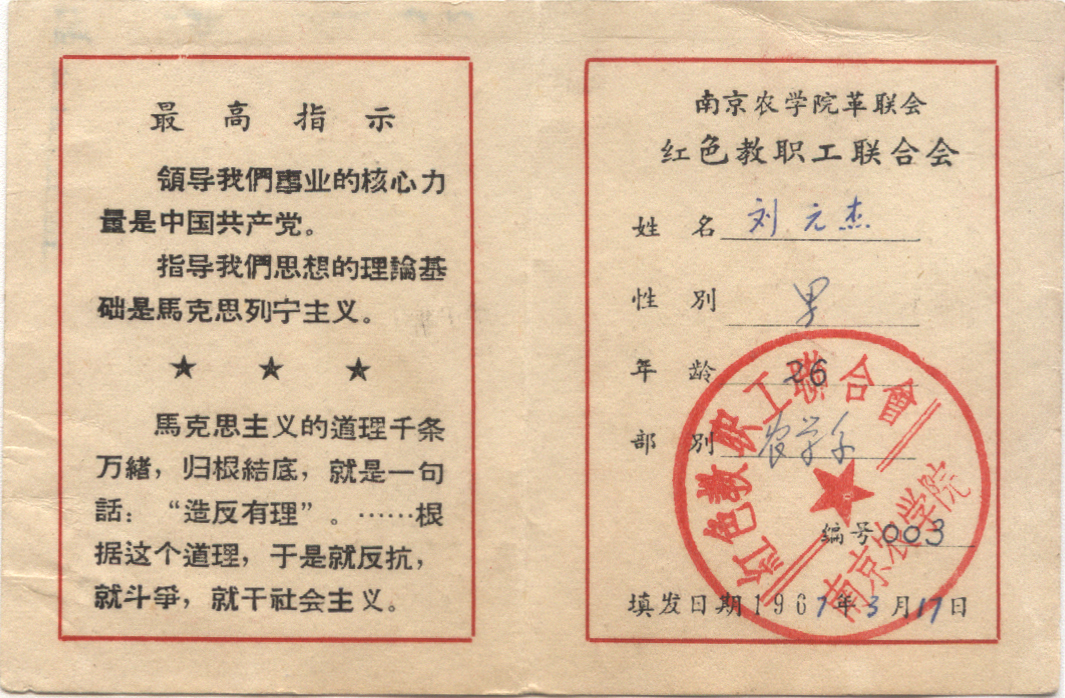 最高指示
領导我們事业的核心力
量是中国共产党。
指导我們思想的理論基
础是馬克思列宁主义。
★ ★ ★
馬克思主义的道理千条
万緒，归根結底，就是一句
話：“造反有理”。……根
据这个道理，于是就反抗，
就斗爭，就干社会主义。
南京农学院革联会
红色教职工联合会
姓名 刘元杰
性别 男
年龄 26
部别 农学系
编号 003
填发日期1967年3月17日
紅色教职工聯合會
南京农学院